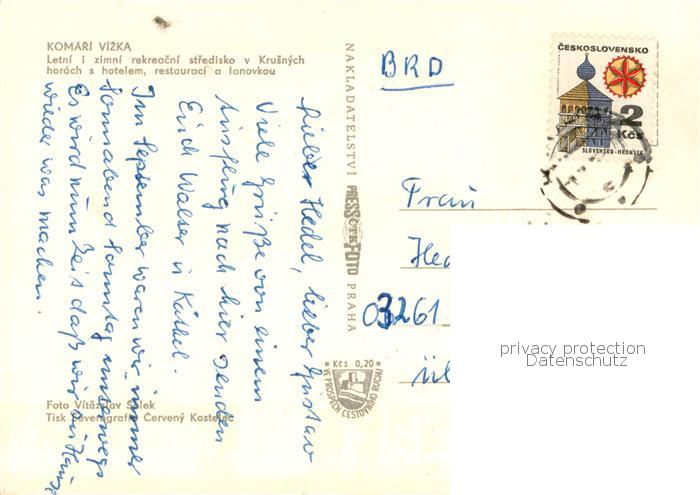 KOMÁŘÍ VÍŽKA
Letní i zimní rekreační středisko v Krušných
horách s hotelem, restaurací a lanovkou
Liebe Hedel, lieber Gustav
Viele Grüße von einem
Ausflug nach hier senden
Euch Walter u Käthel.
Im September waren wir immer
Sonnabend Sonntag unterwegs
Es wird nun Zeit daß wir im Hause
wieder was machen.
Foto Vítězslav
Tisk Severografia Červený Kostelec
NAKLADATELSTVÍ PRESSFOTO PRAHA
ČTK
Kčs 0,20
VE PROSPĚCH CESTOVNÍHO RUCHU
BRD
ČESKOSLOVENSKO
2
Kčs
SLOVENSKO-HRONSEK
Frau
03261
privacy protection
Datenschutz